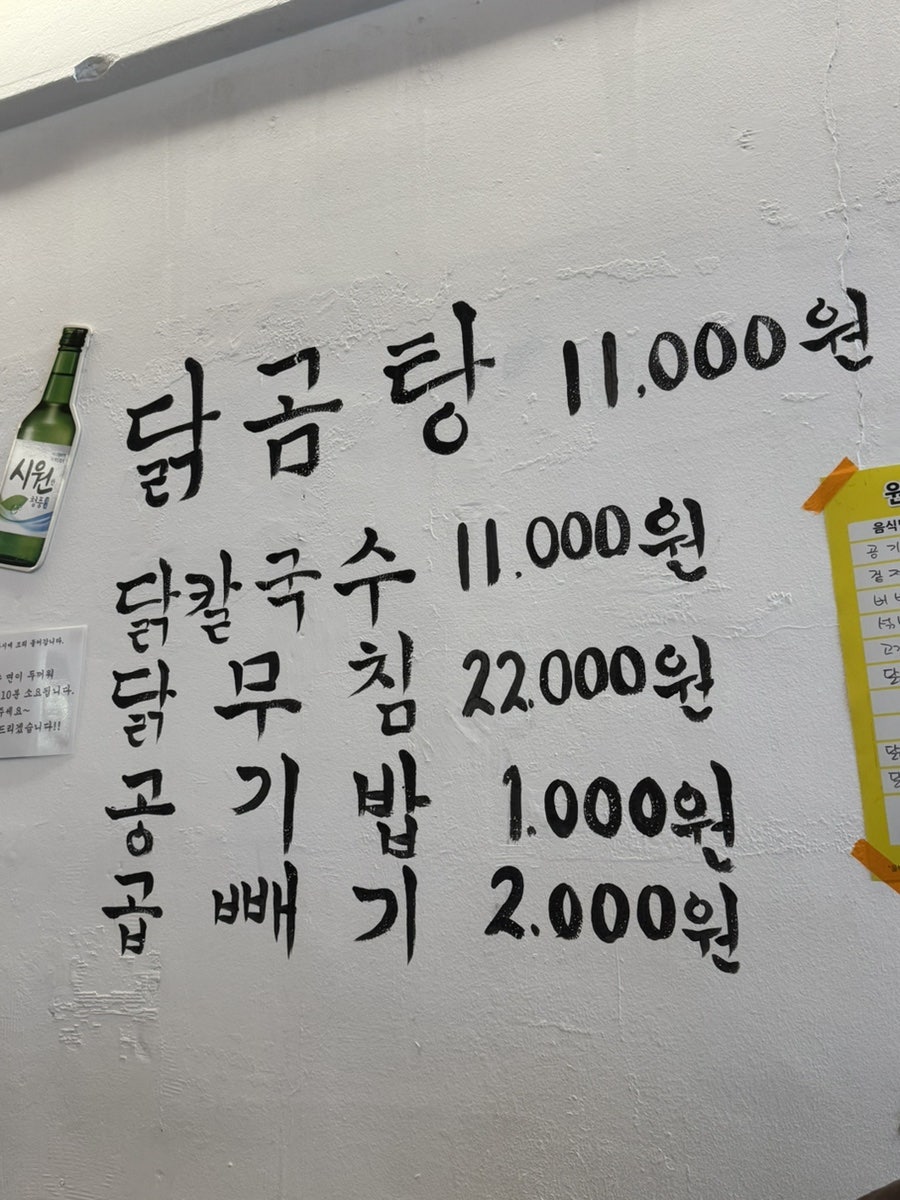 닭곰탕 11.000원
닭칼국수 11.000원
닭무침 22.000원
공기밥 1.000원
곱빼기 2.000원
시원
청풍
면이 두꺼워
10분 소요됩니다.
주세요~
드리겠습니다!!
원
음식
공기
고기
닭
닭